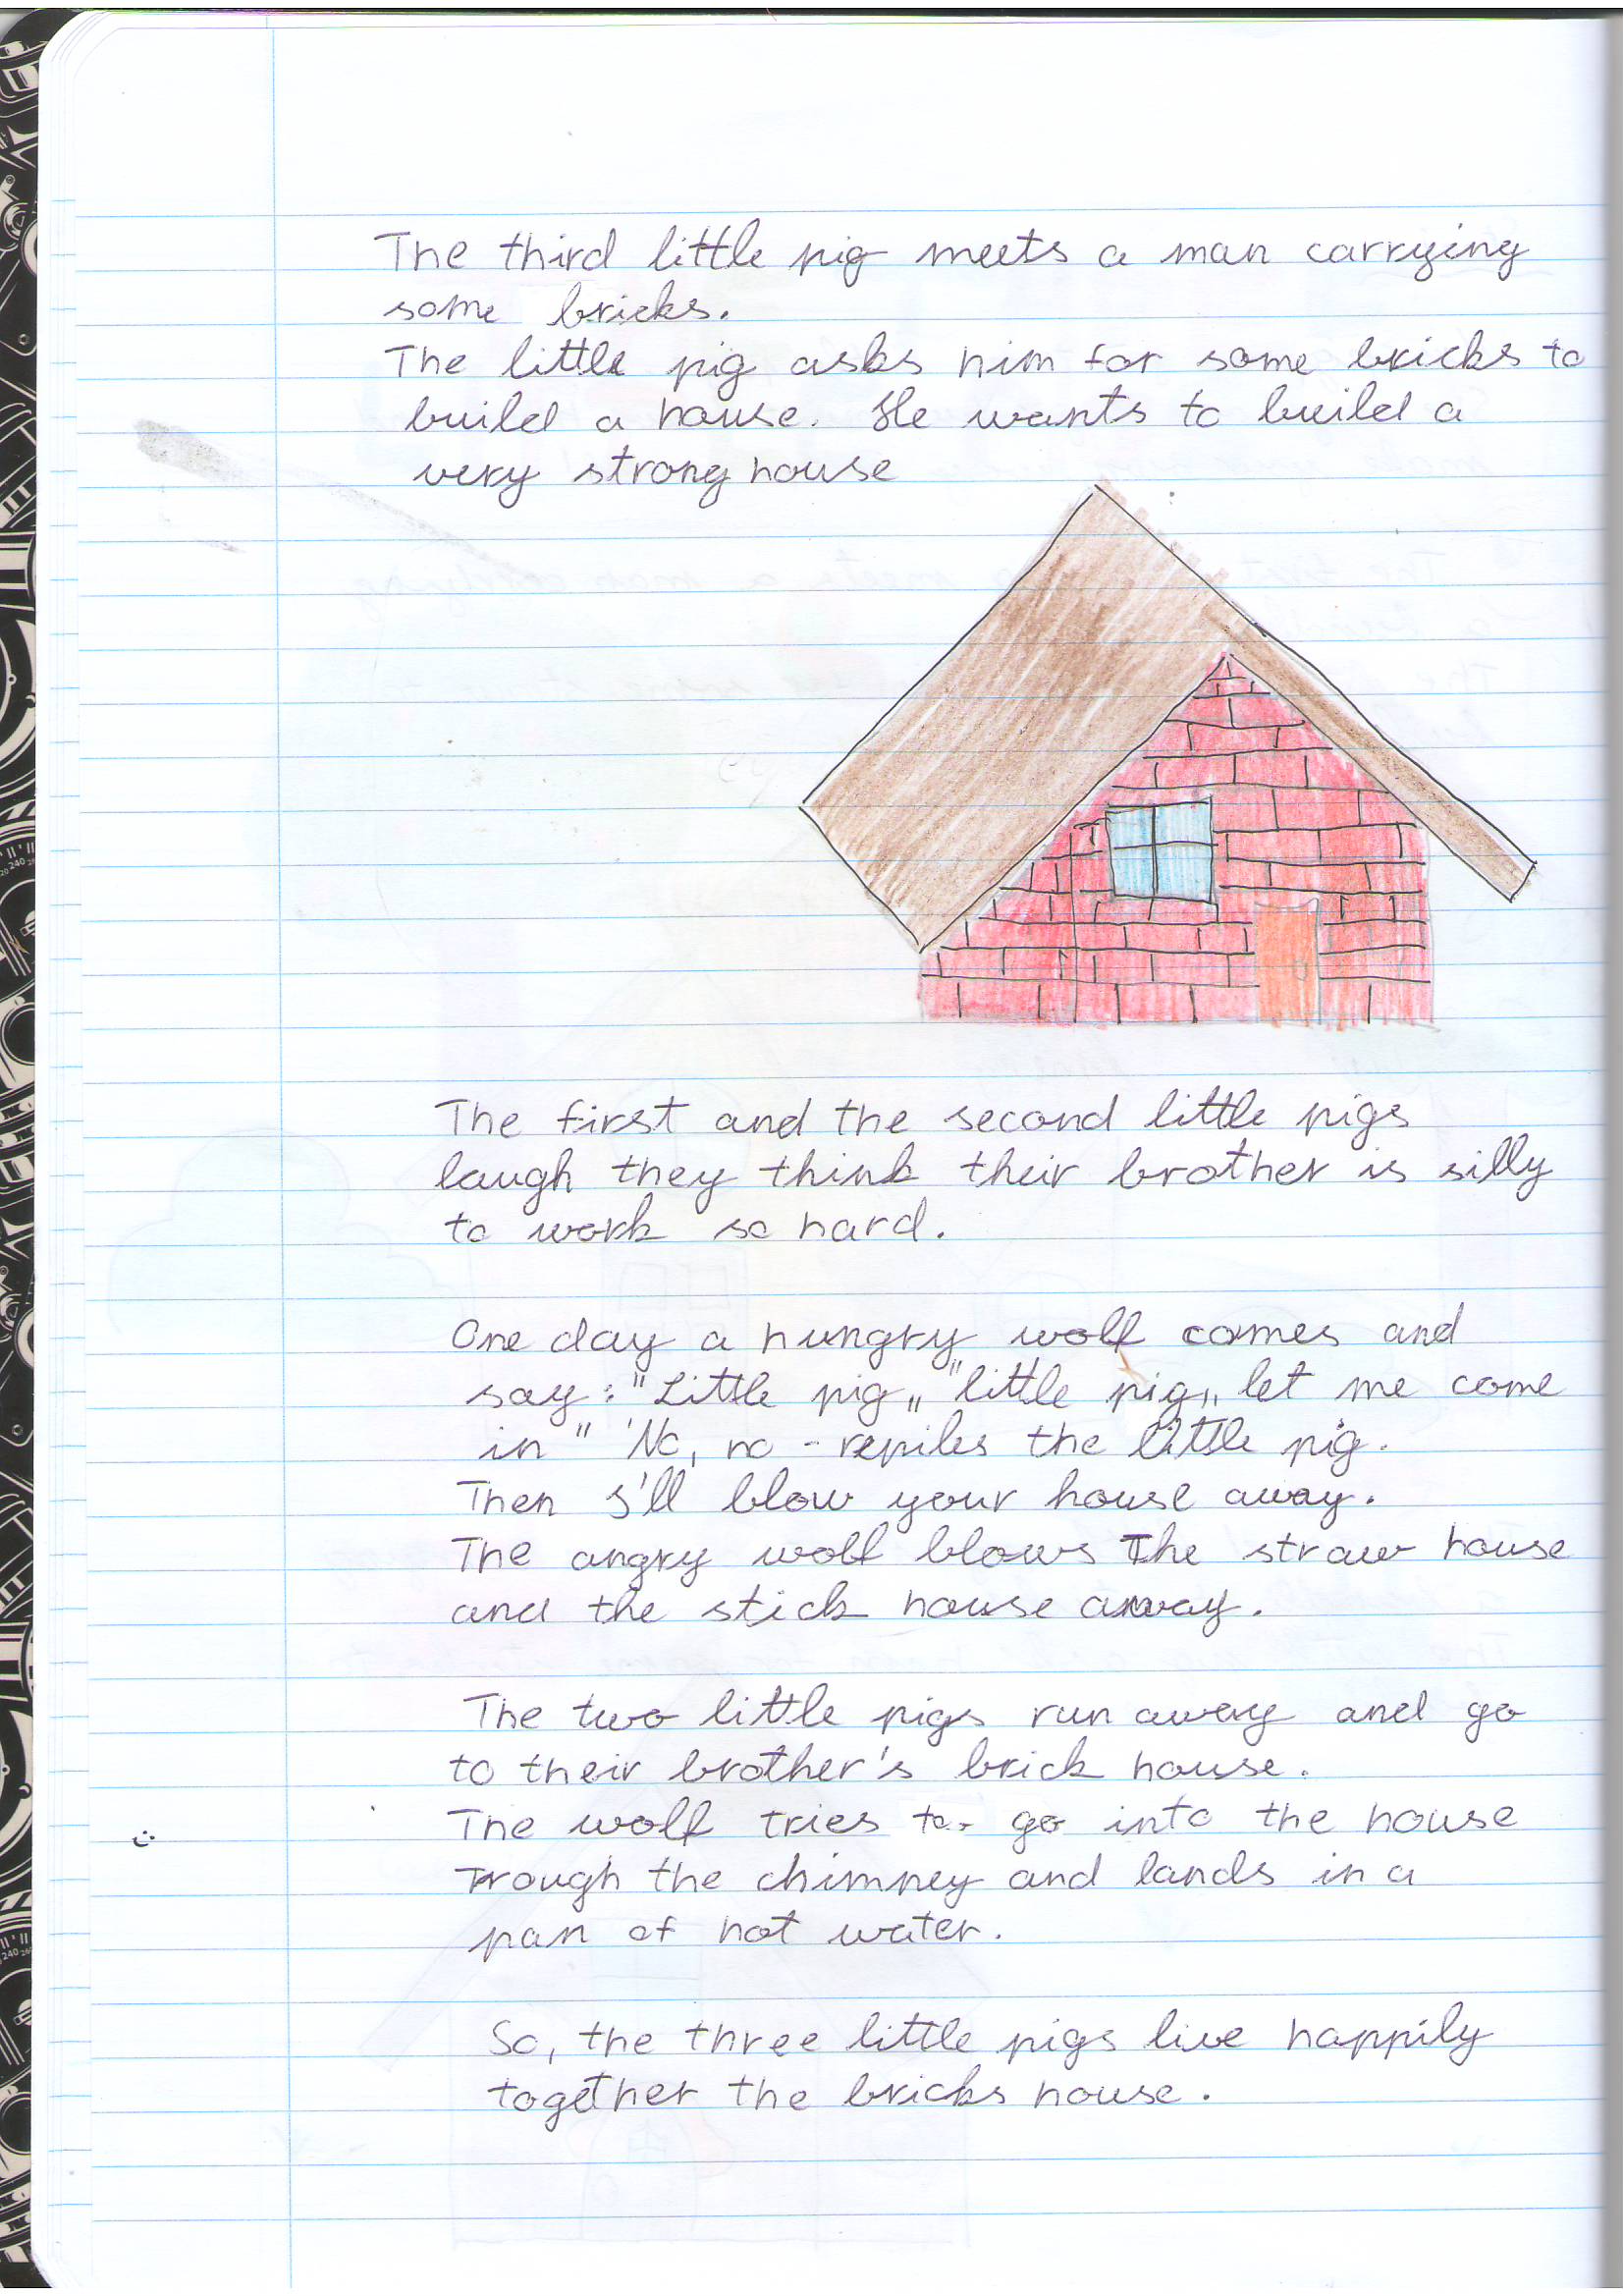 The third little pig meets a man carrying
some bricks.
The little pig asks him for some bricks to
build a house. He wants to build a
very strong house
The first and the second little pigs
laugh they think their brother is silly
to work so hard.
One day a hungry wolf comes and
say: "Little pig„ "little pig„ let me come
in" 'No, no - repiles the little pig.
Then I'll blow your house away.
The angry wolf blows The straw house
and the stick house away.
The two little pigs run away and go
to their brother's brick house.
The wolf tries to go into the house
Trough the chimney and lands in a
pan of hot water.
So, the three little pigs live happily
together the bricks house.